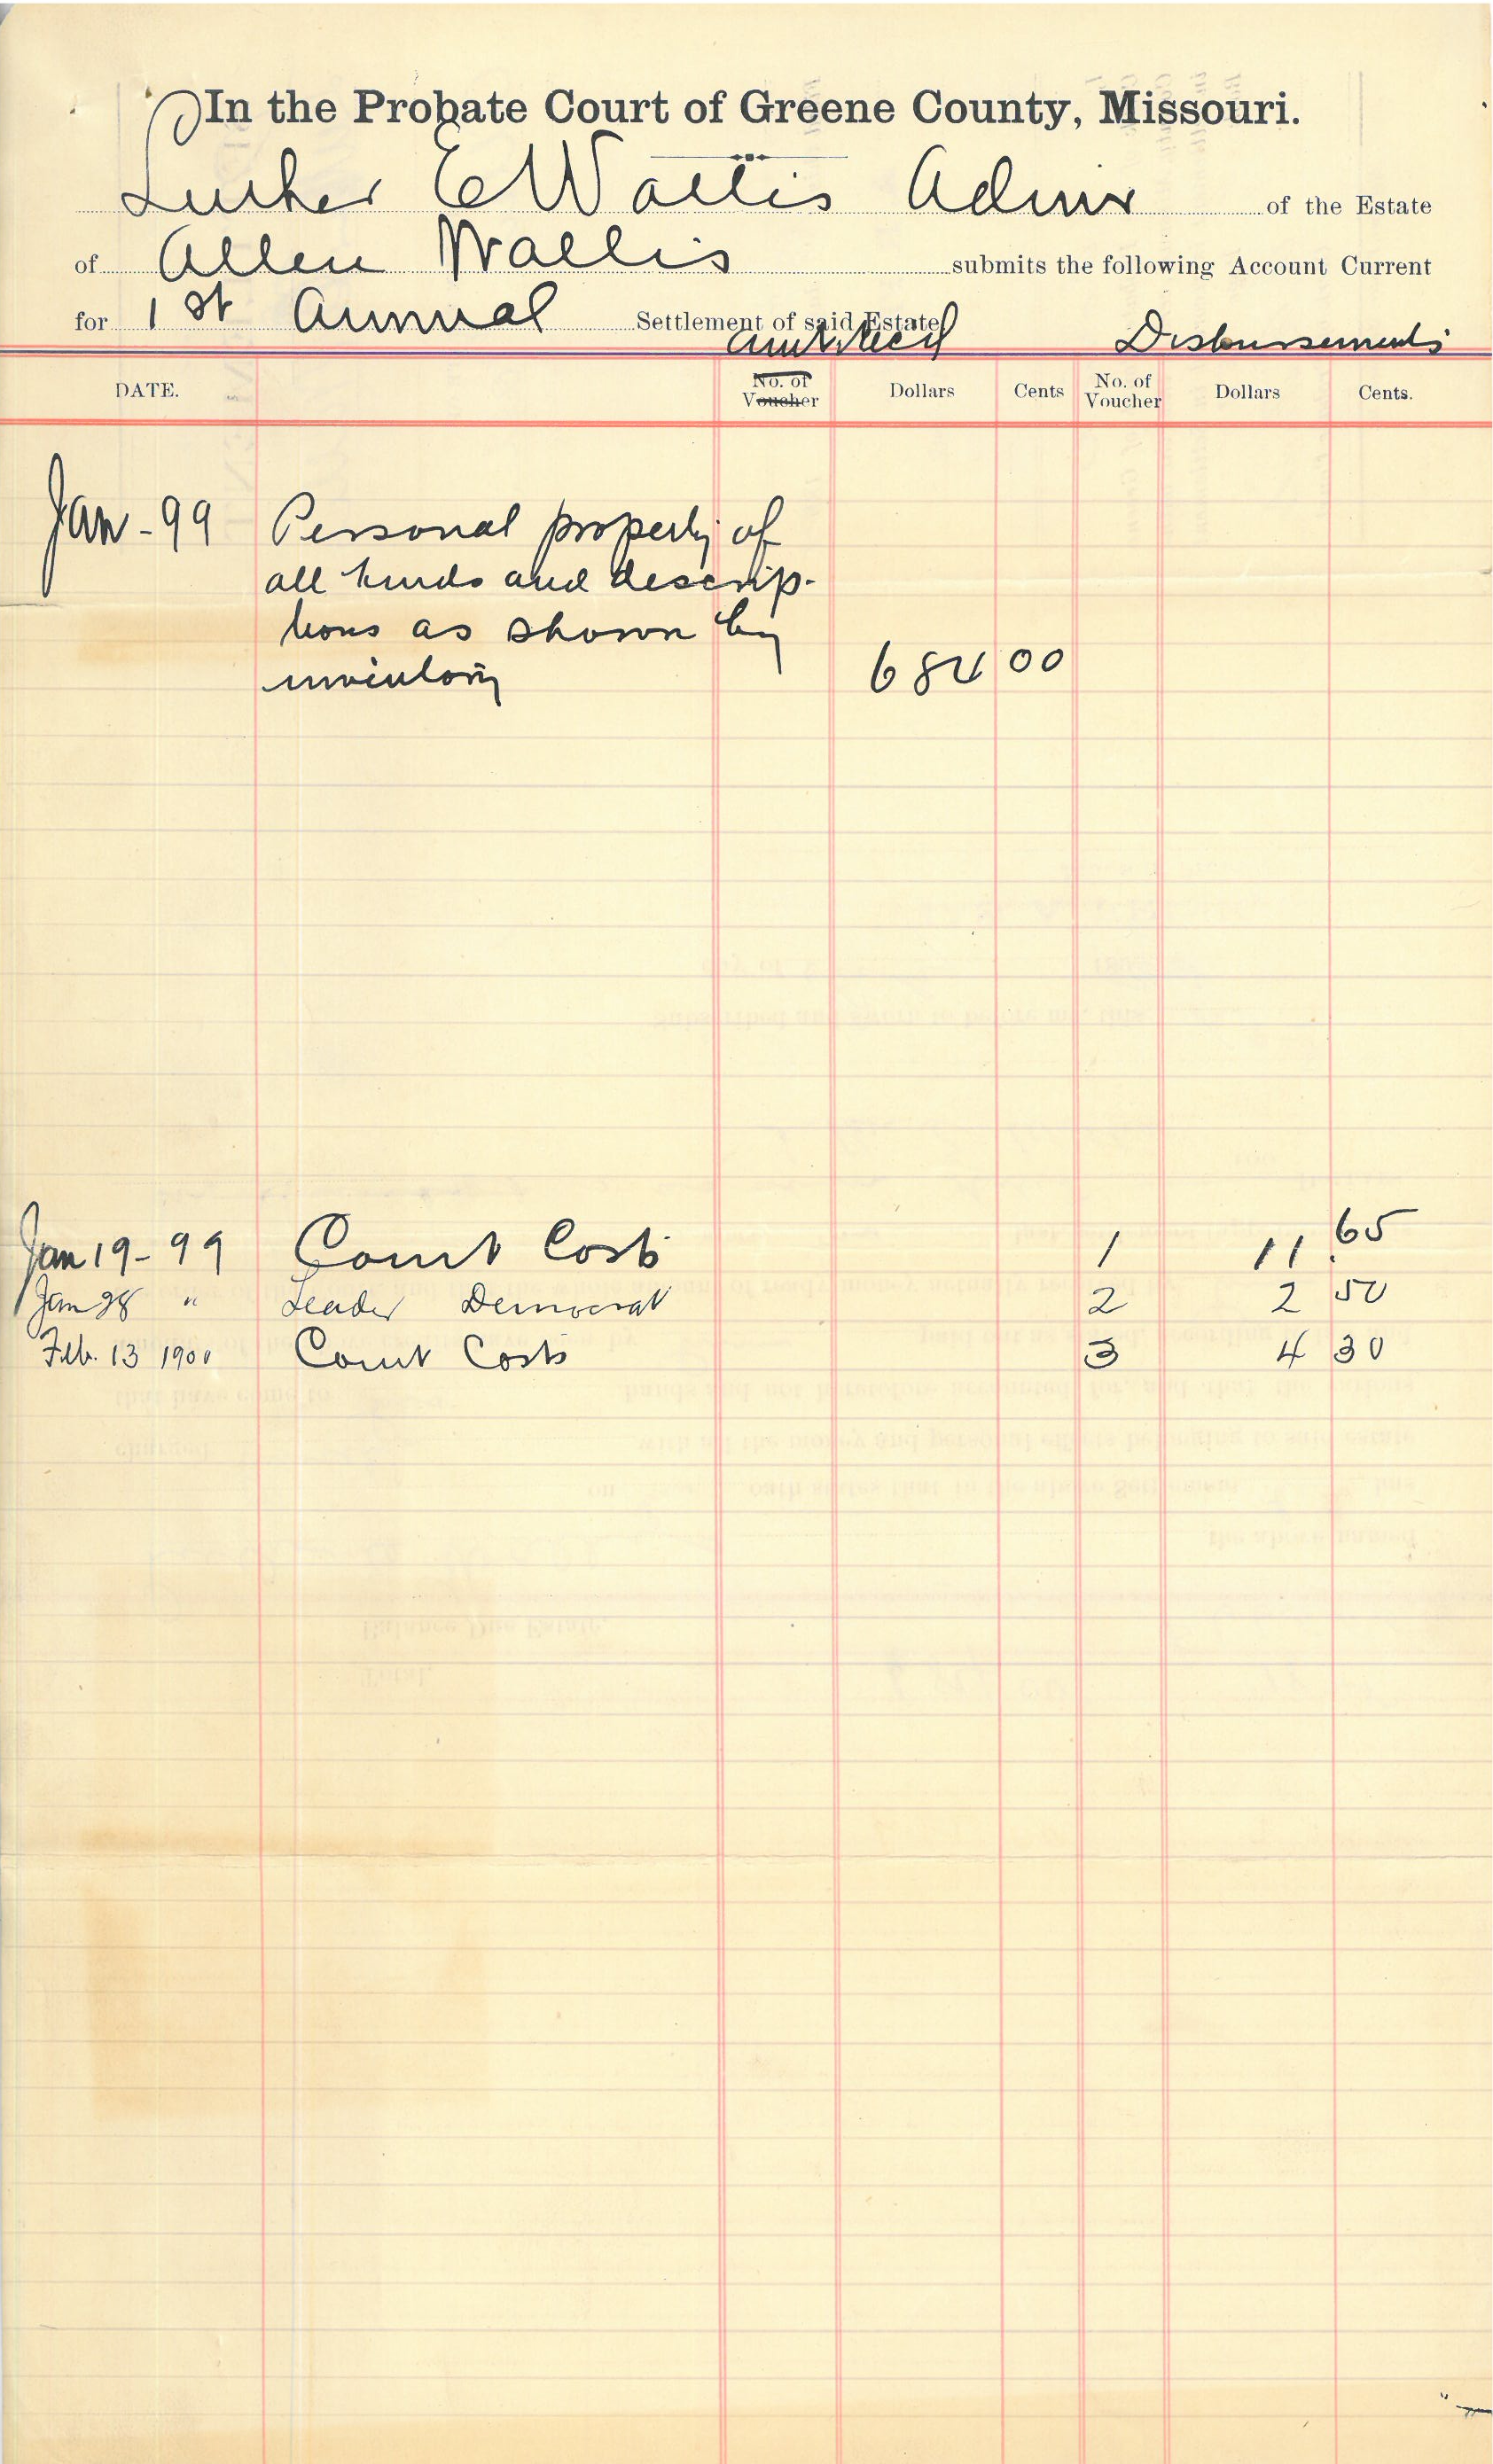 In the Probate Court of Greene County, Missouri.
Luther E Wallis Admr of the Estate
of Allen Wallis submits the following Account Current
for 1st Annual Settlement of said Estate
Amt Recd Disbursements
DATE. No. of Voucher Dollars Cents No. of Voucher Dollars Cents.
Jan - 99 Personal property of
all kinds and descrip-
tions as shown by
inventory 684 00
Jan 19 - 99 Court Costs 1 11 .65
Jan 28 " Leader Democrat 2 2 50
Feb. 13 1900 Court Costs 3 4 30